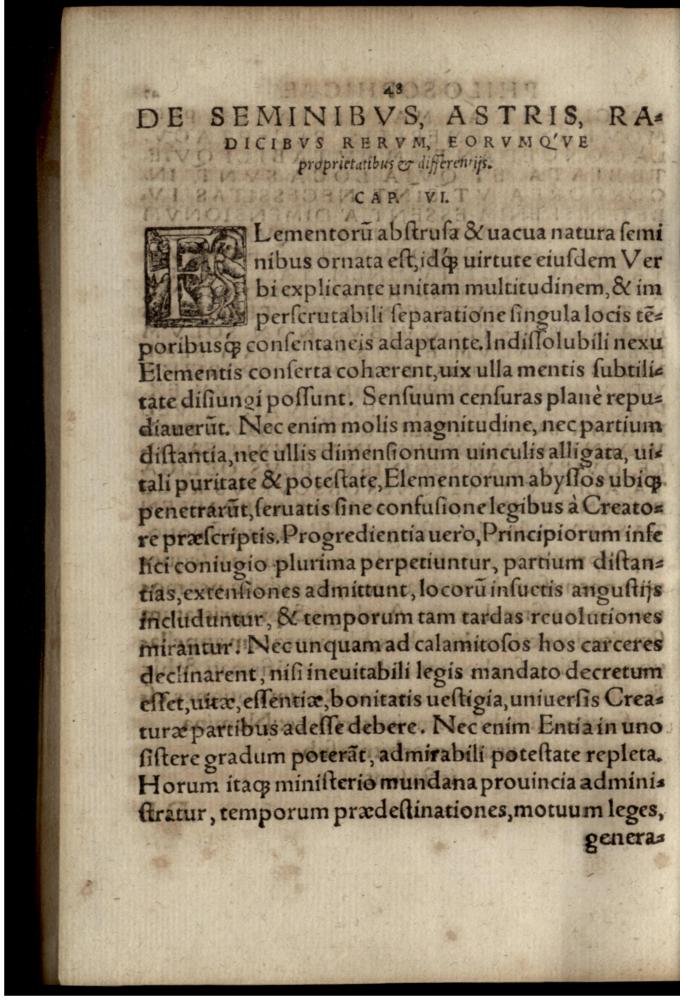 48
DE SEMINIBVS, ASTRIS, RA-
DICIBVS RERVM, EORVMQ́VE
proprietatibus & differentijs.
CAP. VI.
ELementorū abstrusa & uacua natura semi
nibus ornata est, idq́; uirtute eiusdem Ver
bi explicante unitam multitudinem, & im
perscrutabili separatione singula locis tē-
poribusq́; consentaneis adaptante. Indissolubili nexu
Elementis conserta cohærent, uix ulla mentis subtili-
tate disiungi possunt. Sensuum censuras planè repu-
diauerūt. Nec enim molis magnitudine, nec partium
distantia, nec ullis dimensionum uinculis alligata, ui-
tali puritate & potestate, Elementorum abyssos ubiq;
penetrarūt, seruatis sine confusione legibus à Creato-
re præscriptis. Progredientia uerò, Principiorum infe
lici coniugio plurima perpetiuntur, partium distan-
tias, extensiones admittunt, locorū insuetis angustijs
includuntur, & temporum tam tardas reuolutiones
mirantur. Nec unquam ad calamitosos hos carceres
declinarent, nisi ineuitabili legis mandato decretum
esset, uitæ, essentiæ, bonitatis uestigia, uniuersis Crea-
turæ partibus adesse debere. Nec enim Entia in uno
sistere gradum poterāt, admirabili potestate repleta.
Horum itaq; ministerio mundana prouincia admini-
stratur, temporum prædestinationes, motuum leges,
genera-